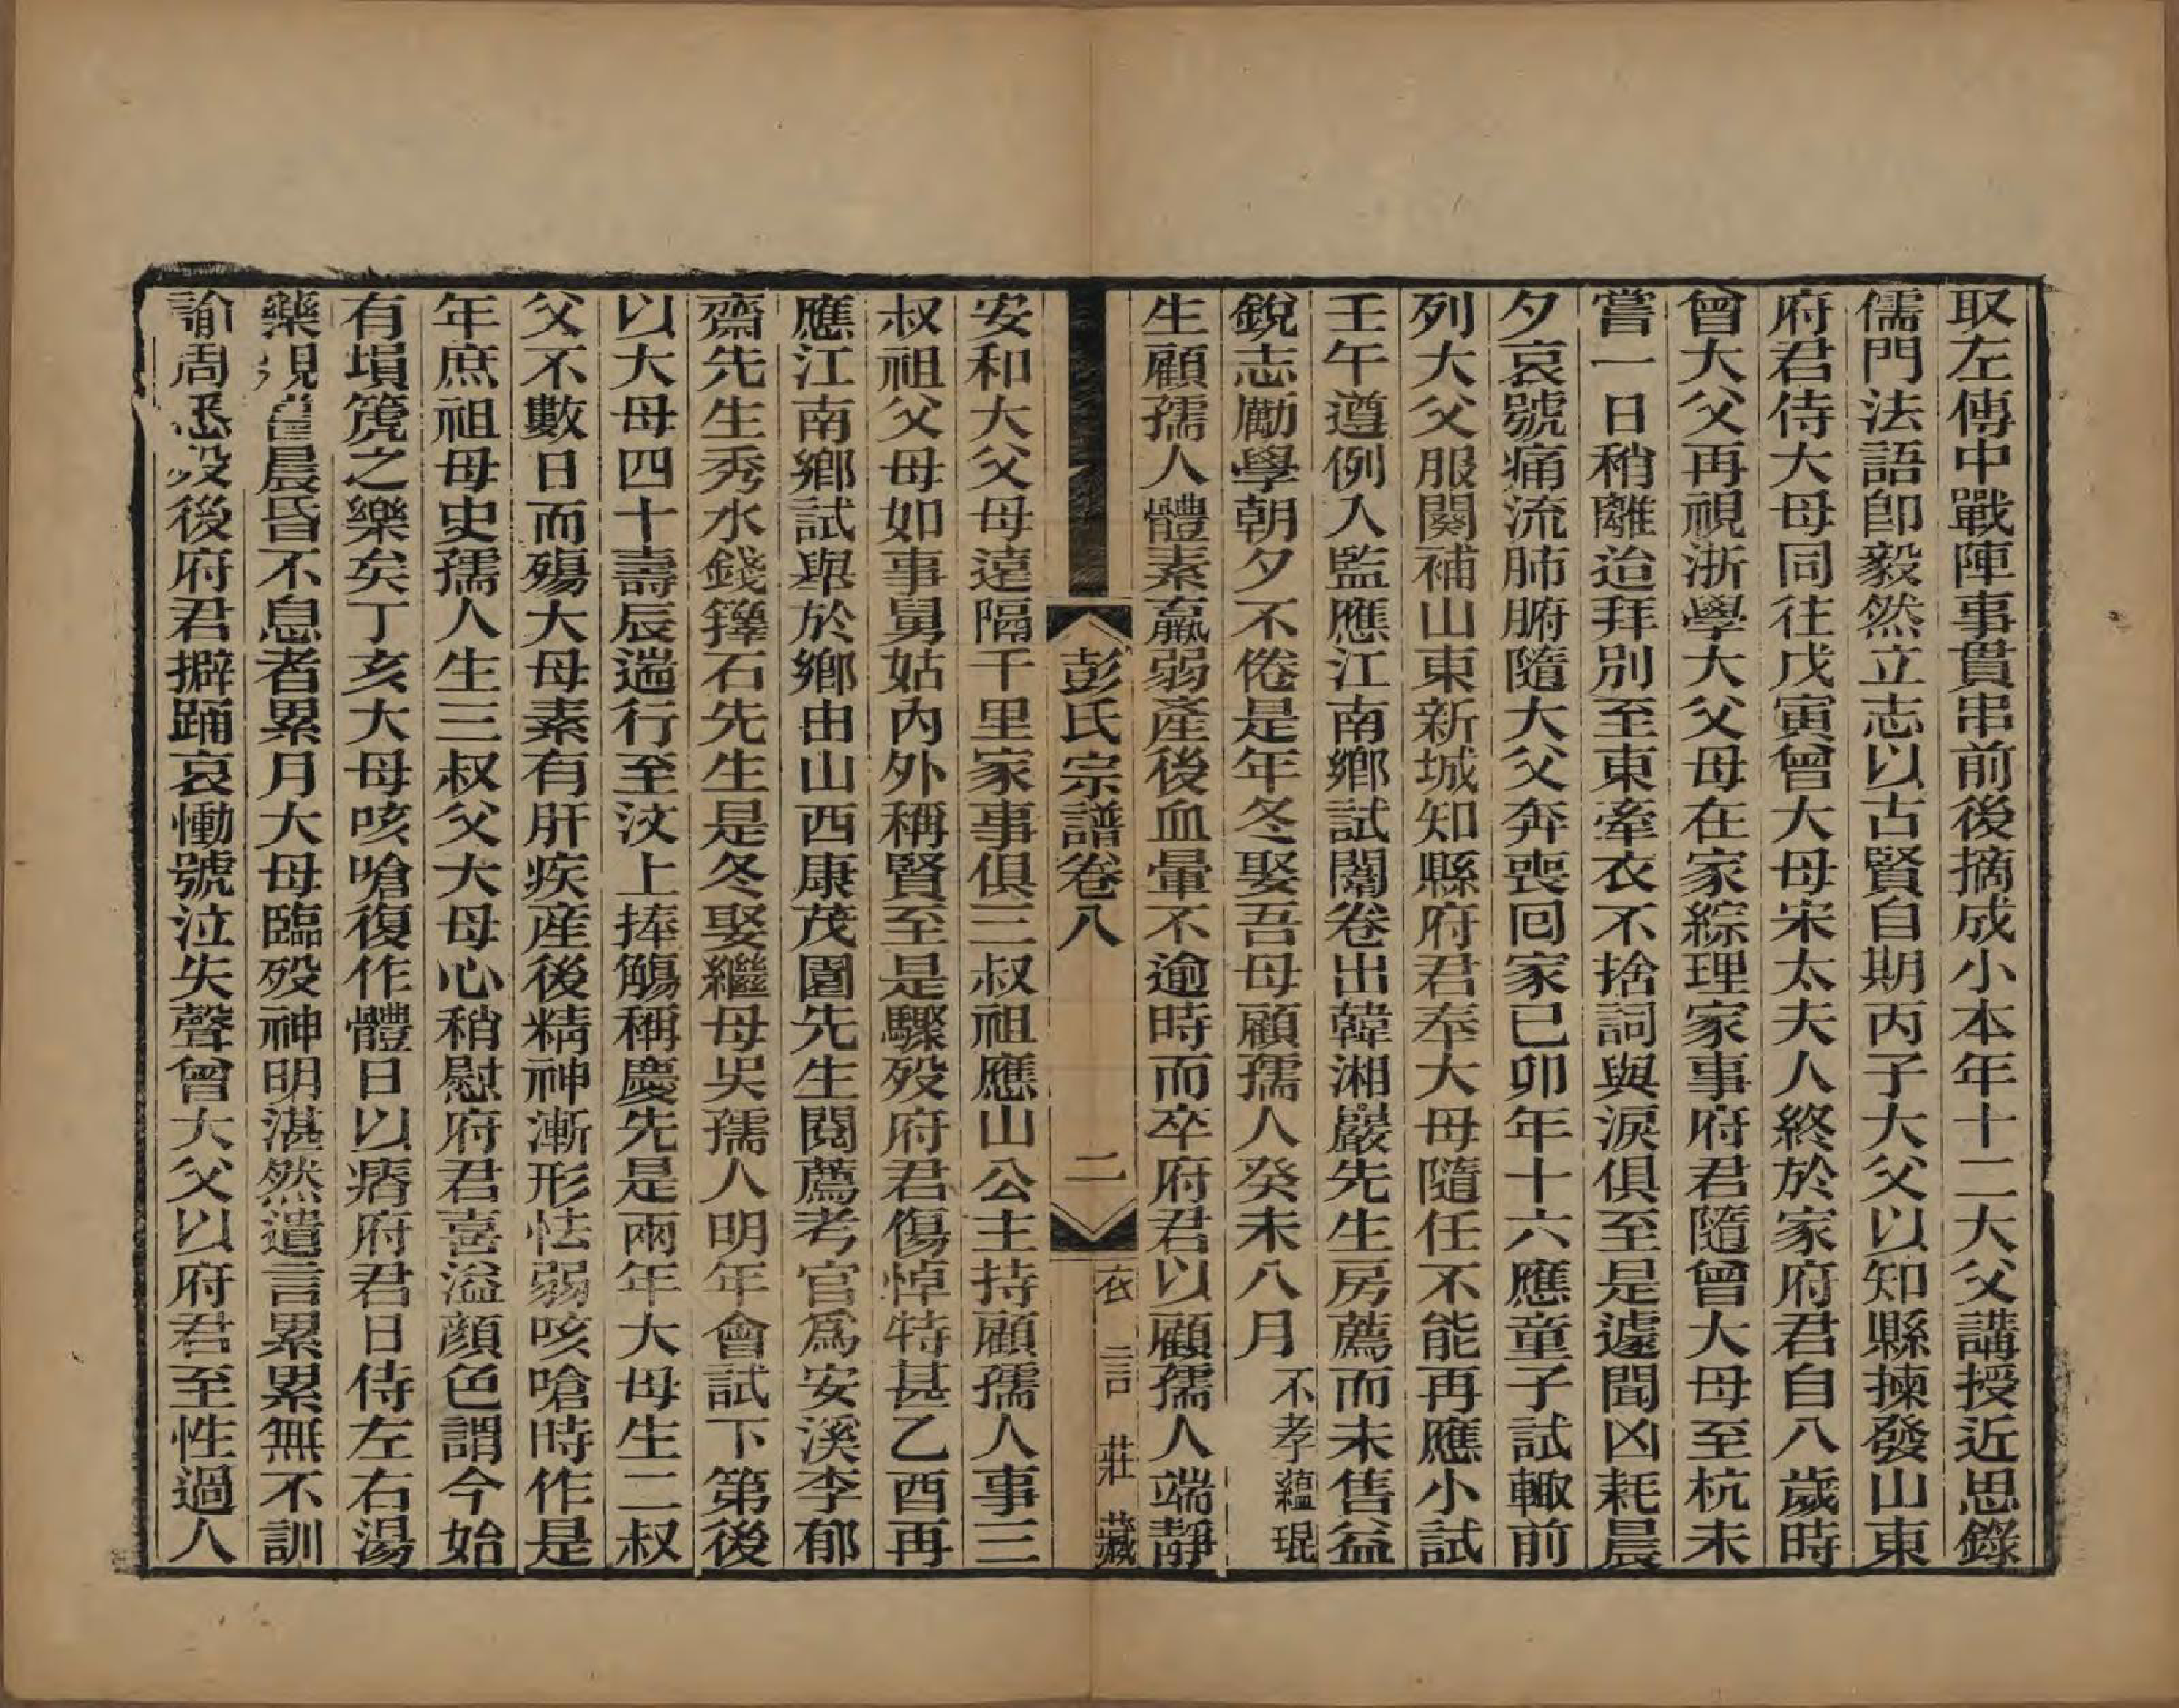 取左傳中戰陣事貫串前後摘成小本年十二大父講授近思錄
儒門法語卽毅然立志以古賢自期丙子大父以知縣揀發山東
府君侍大母同往戊寅曾大母宋太夫人終於家府君自八歲時
曾大父再視浙學大父母在家綜理家事府君隨曾大母至杭未
嘗一日稍離迨拜別至東牽衣不捨詞與淚俱至是遽聞凶耗晨
夕哀號痛流肺腑隨大父奔喪回家已卯年十六應童子試輙前
列大父服闋補山東新城知縣府君奉大母隨任不能再應小試
壬午遵例入監應江南鄉試闈卷出韓湘巖先生房薦而未售益
銳志勵學朝夕不倦是年冬娶吾母顧孺人癸未八月不孝蘊琨
生顧孺人體素羸弱產後血暈不逾時而卒府君以顧孺人端靜
彭氏宗譜卷八 二 衣言莊藏
安和大父母遠隔千里家事俱三叔祖應山公主持顧孺人事三
叔祖父母如事舅姑內外稱賢至是驟歿府君傷悼特甚乙酉再
應江南鄉試舉於鄉由山西康茂園先生閱薦考官爲安溪李郁
齋先生秀水錢籜石先生是冬娶繼母吳孺人明年會試下第後
以大母四十壽辰遄行至汶上捧觴稱慶先是兩年大母生二叔
父不數日而殤大母素有肝疾産後精神漸形怯弱咳嗆時作是
年庶祖母史孺人生三叔父大母心稍慰府君喜溢顏色謂今始
有塤篪之樂矣丁亥大母咳嗆復作體日以瘠府君日侍左右湯
藥視膳晨昏不息者累月大母臨歿神明湛然遺言累累無不訓
諭周悉歿後府君擗踊哀慟號泣失聲曾大父以府君至性過人